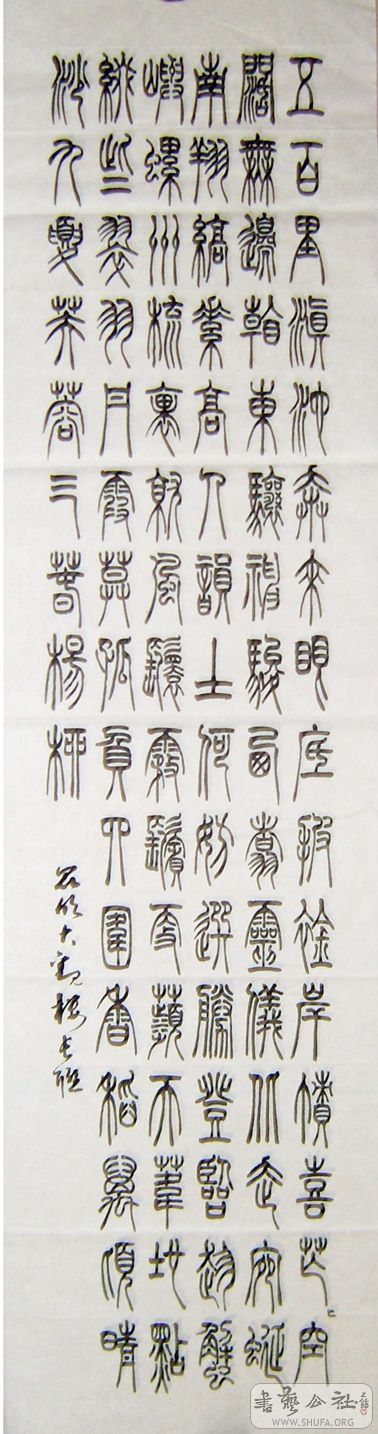 五百里滇池奔來眼底披襟岸幘喜茫々空
闊無邊看東驤神駿西翥靈儀北走蜿蜒
南翔縞素高人韻士何妨選勝登臨趁蟹
嶼螺州梳裹就風鬟霧鬢更蘋天葦地點
綴些翠羽丹霞莫孤負四圍香稻萬頃晴
沙九夏芙蓉三春楊柳
昆明大觀樓長聯
書藝公社
WWW.SHUFA.ORG